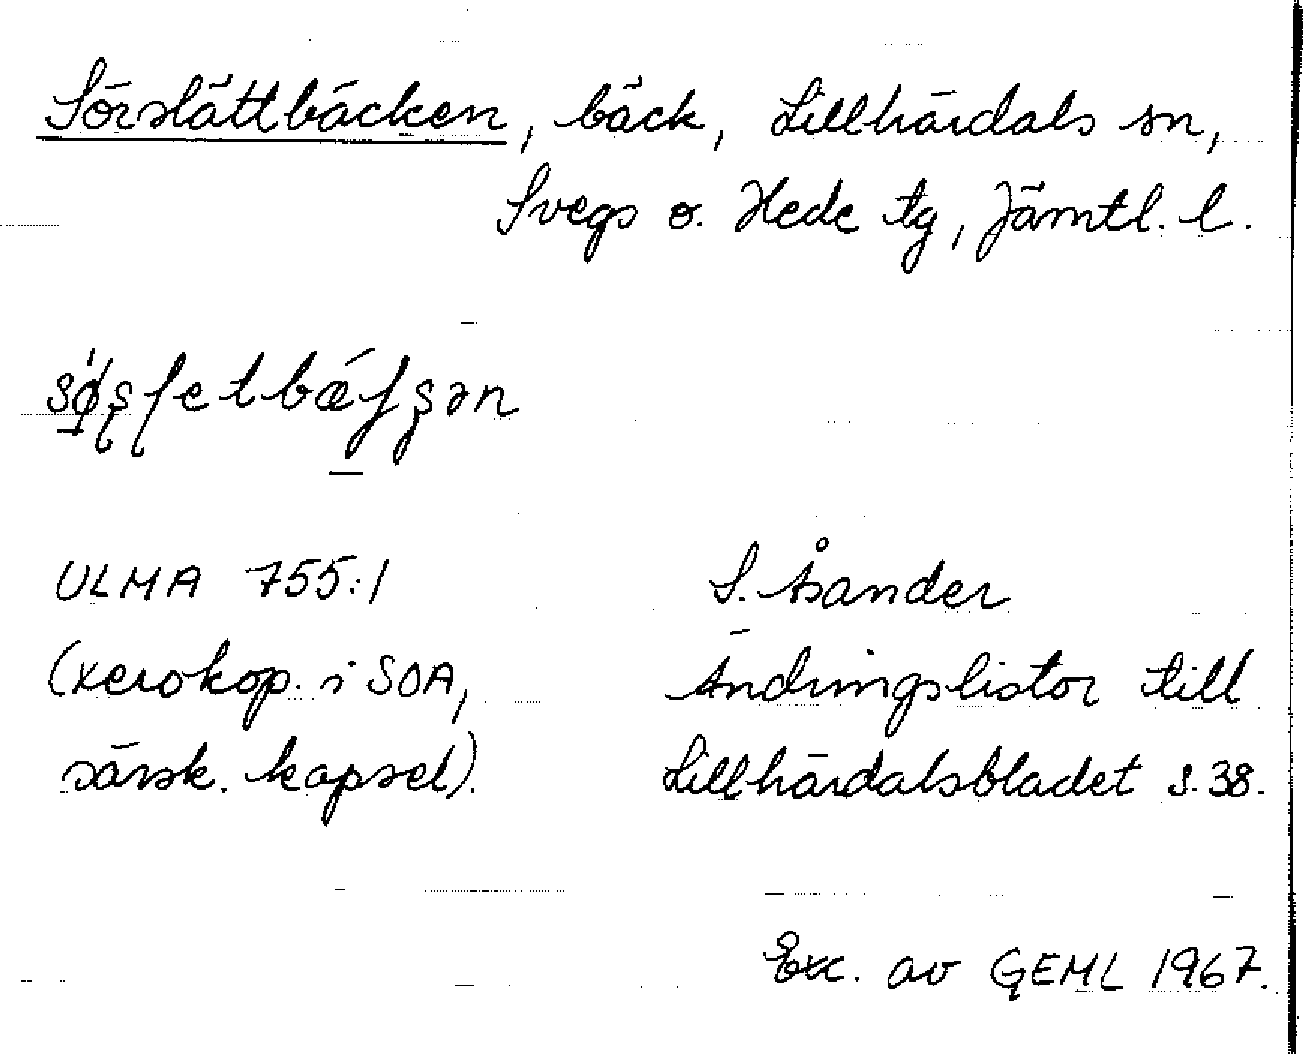 Sörslättbäcken, bäck, Lillhärdals sn,
Svegs o. Hede tg, Jämtl. l.
ULMA 755:1
(xerokop. i SOA,
särsk. kapsel).
S. Åsander
Ändringslistor till
Lillhärdalsbladet s. 38.
Exc. av GEML 1967.